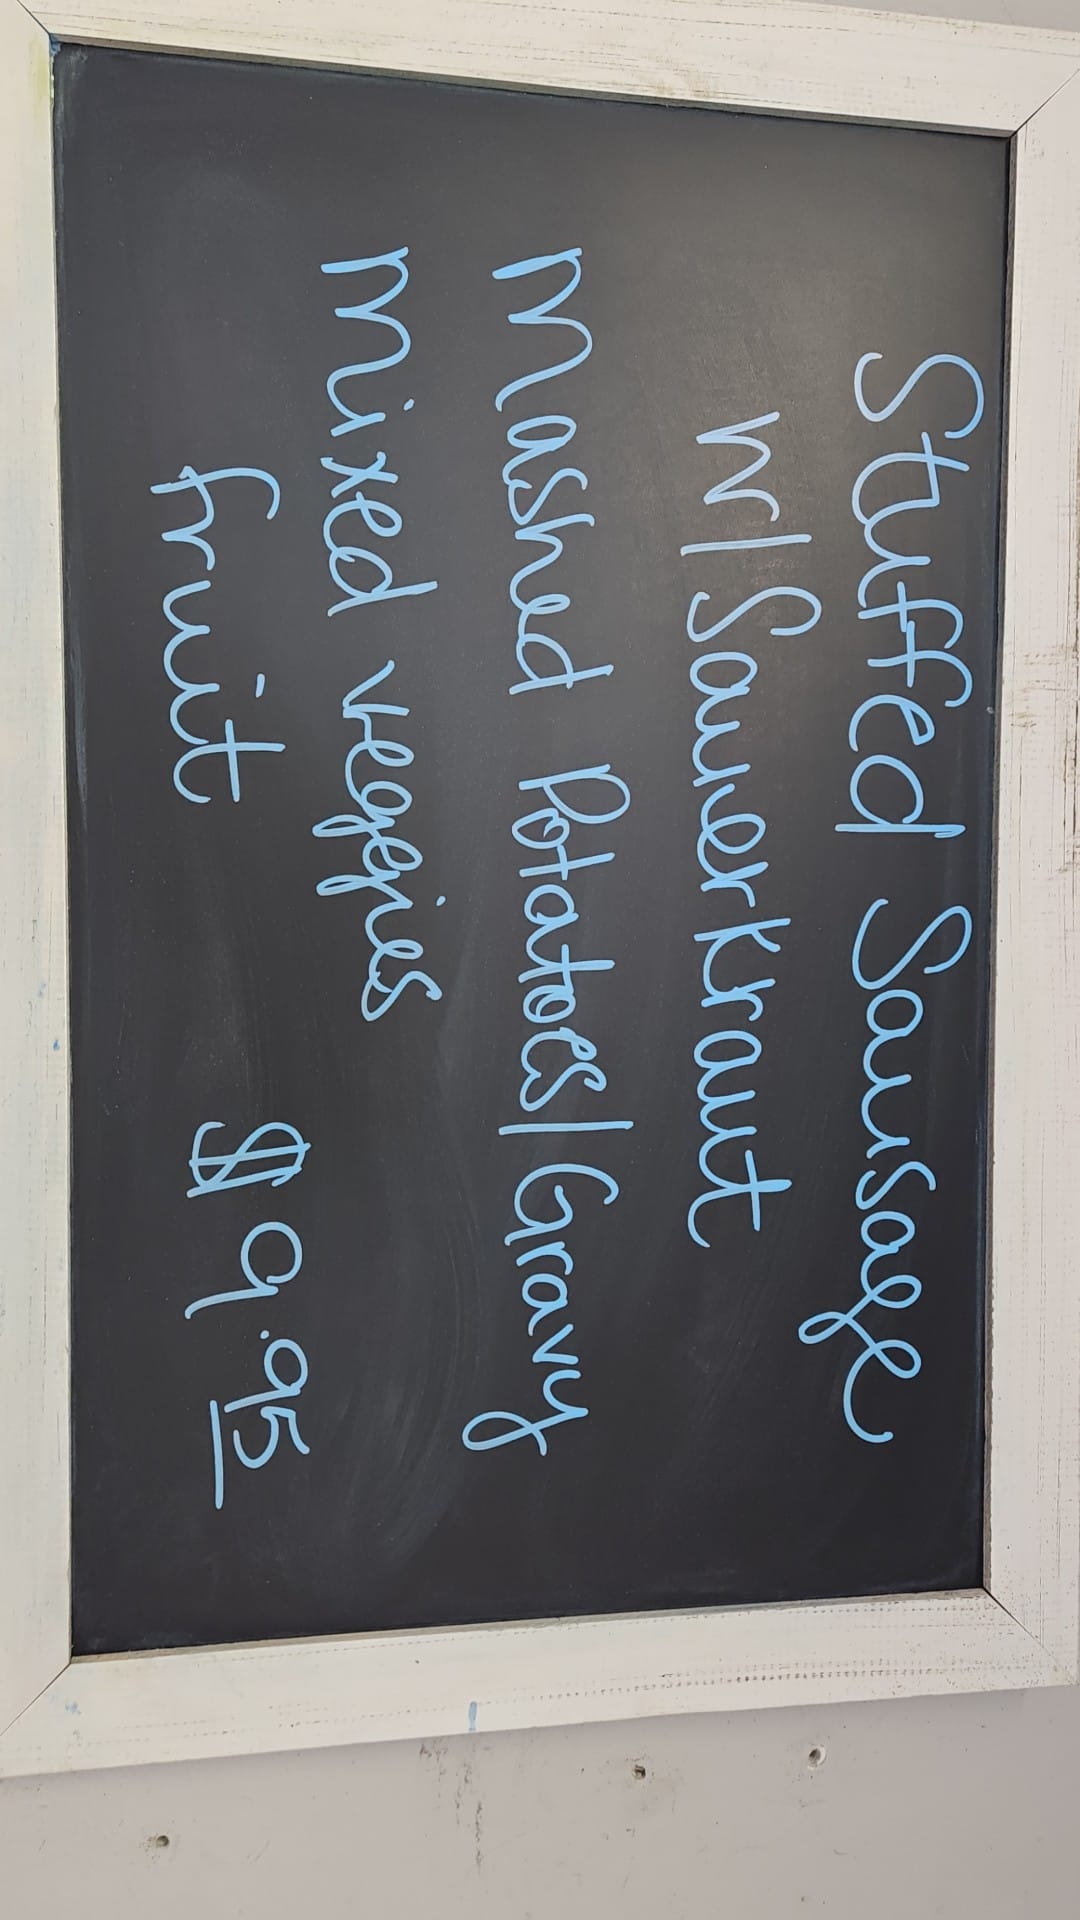 Stuffed Sausage
w/Sauerkraut
Mashed Potatoes/Gravy
Mixed veggies
fruit
$9.95